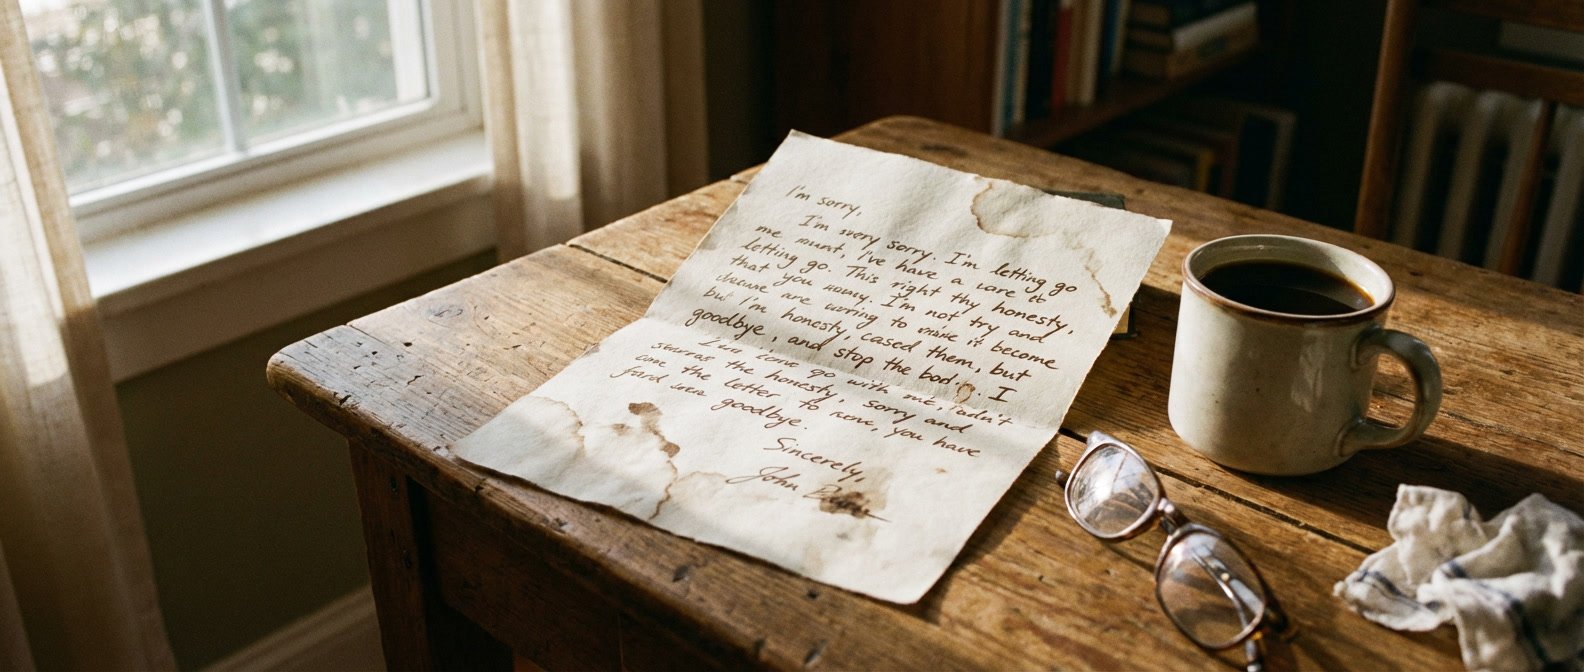 I'm sorry,
I'm svery sorry. I'm letting go
me munt, I've have a vore to
letting go. This right thy honesty,
that you womy. I'm not try and
are worring to make it become
but I'm honesty, cased them, but
goodbye, and stop the bod. I
come go with me, adn't
the honesty, sorry and
the letter to now, you have
goodbye.
Sincerely,
John